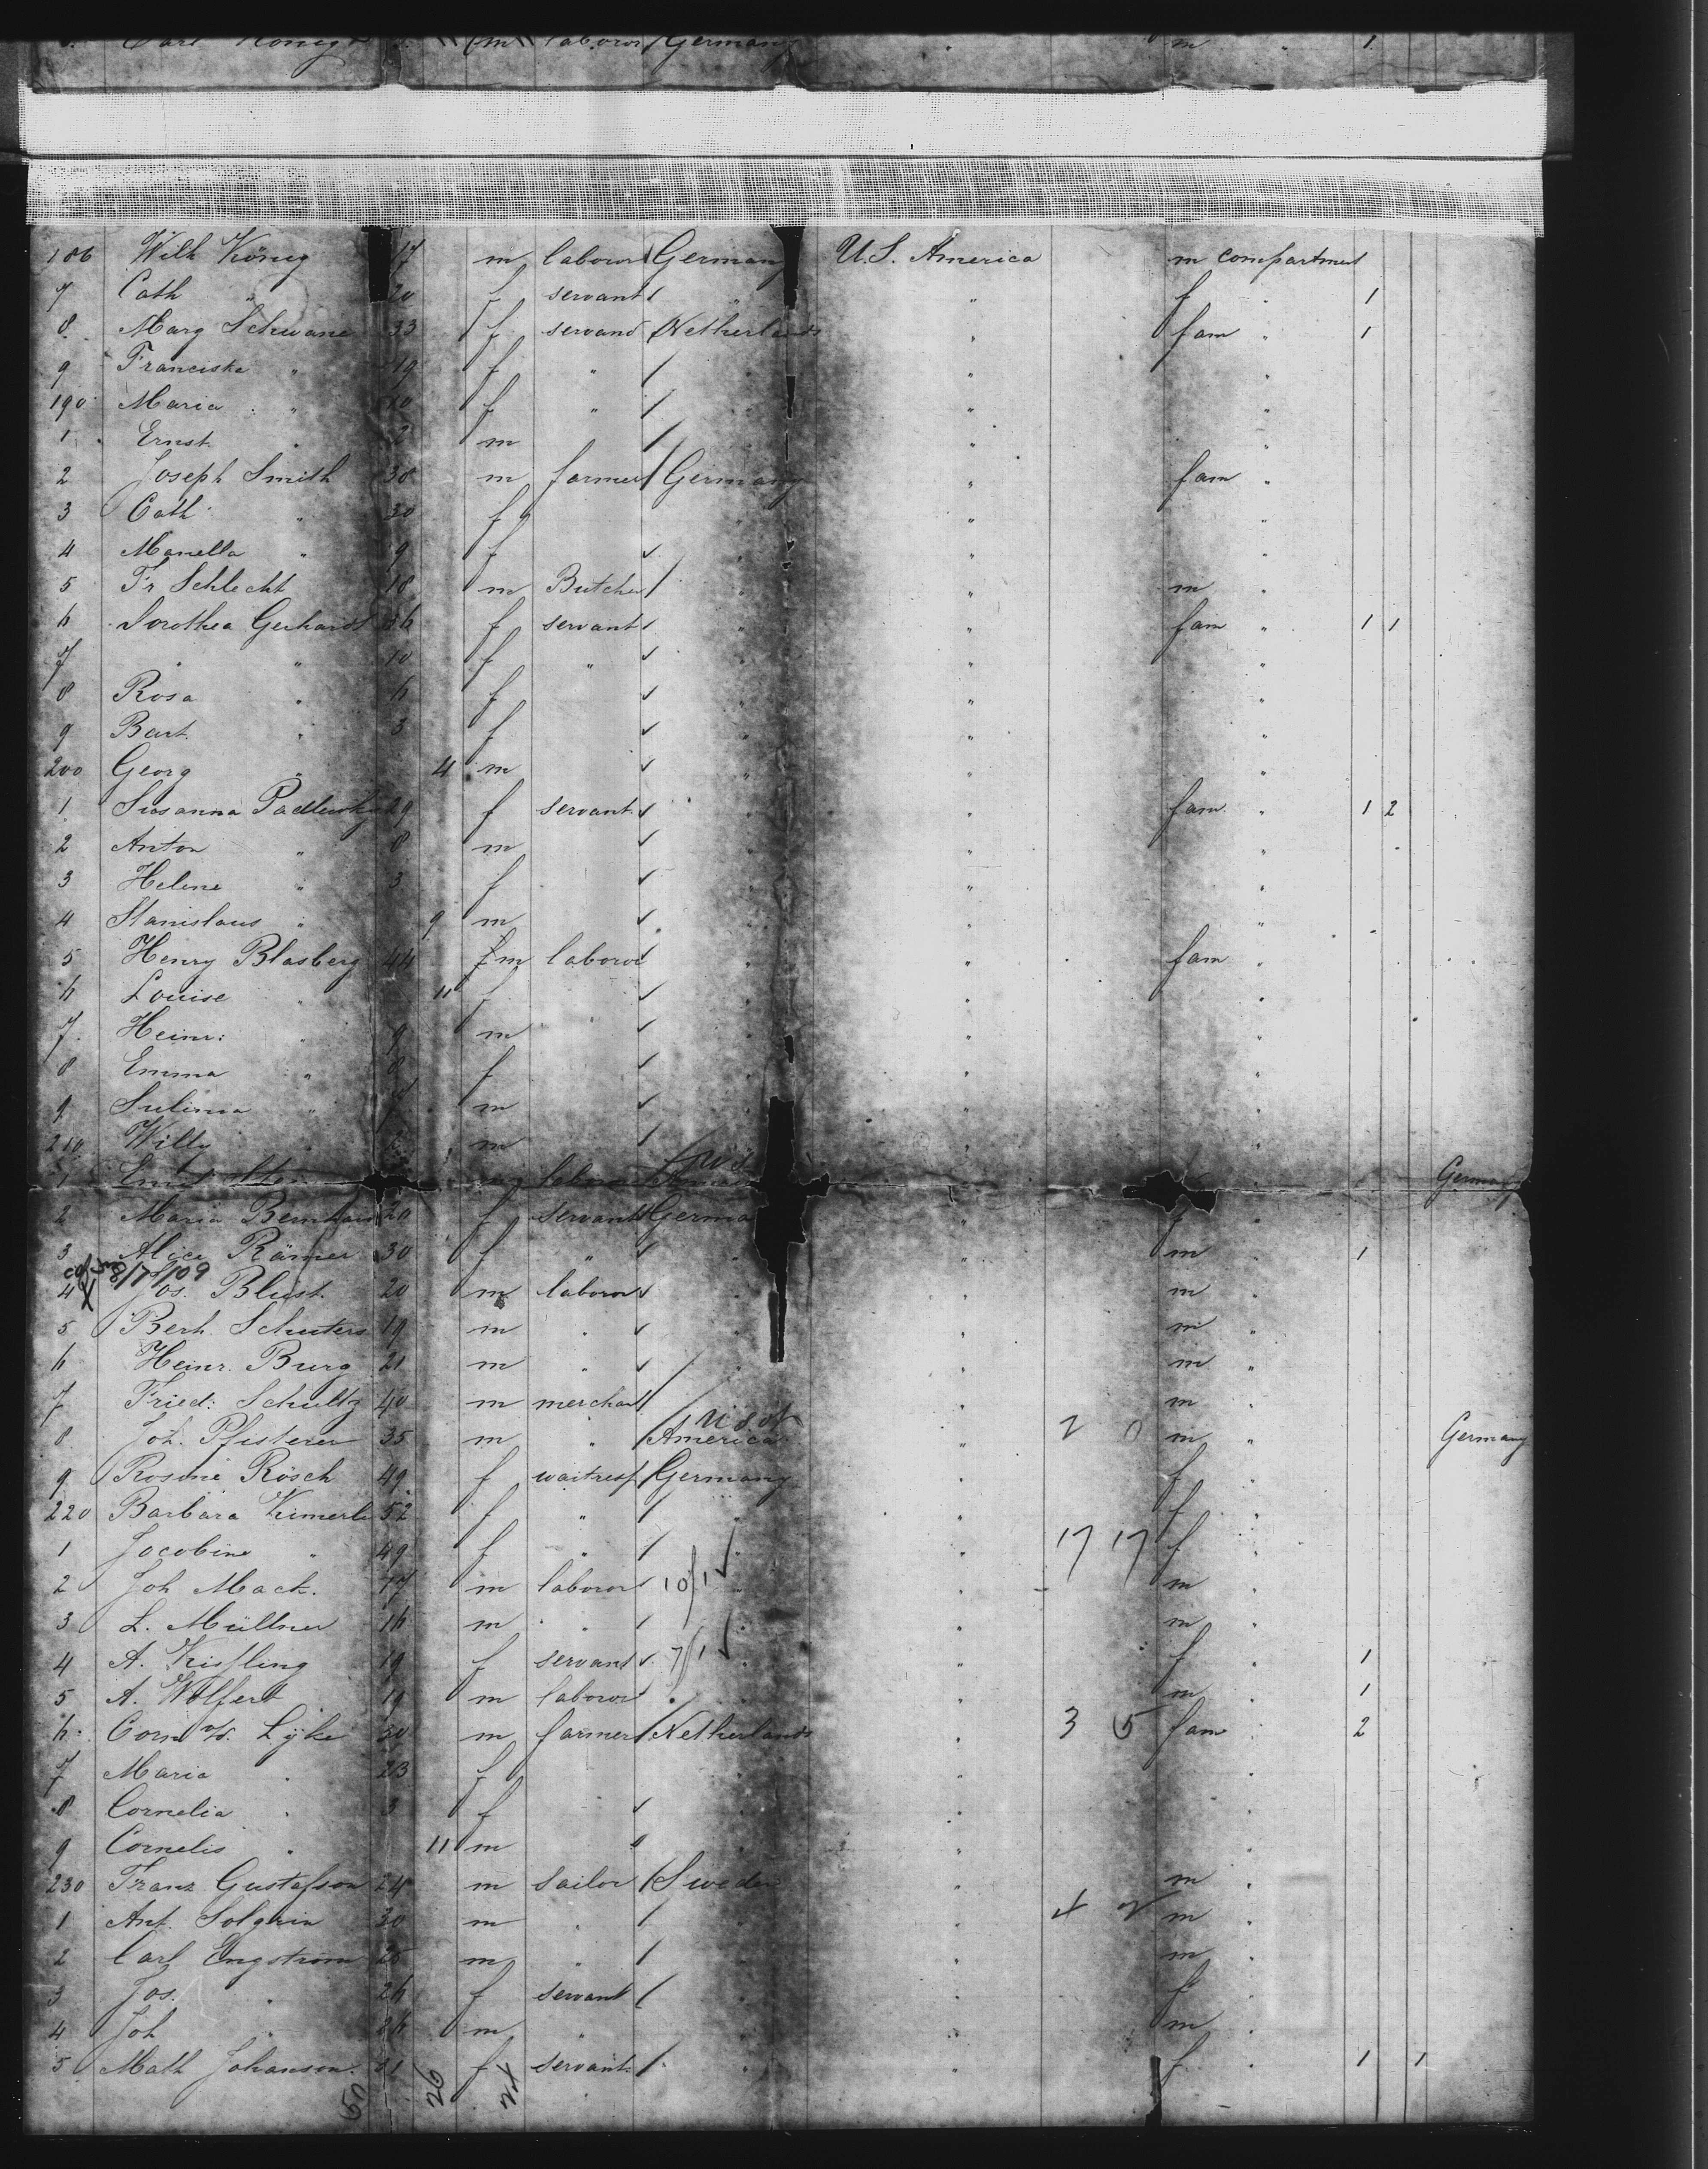 Carl König m laborer Germany m 1
186 Wilh König 17 m laborer Germany U.S. America m compartment
7 Cath " 20 f servant " " f " 1
8 Marg Schwane 33 f servand Netherlands " fam " 1
9 Franciska " 19 f " " "
190 Maria " 10 f " " "
1 Ernst " 2 m " "
2 Joseph Smith 38 m farmer Germany " fam "
3 Cath " 30 f " " "
4 Manella " 9 f " " "
5 Fr Schlecht 18 m Butcher " " m "
6 Dorothea Gerhardt 36 f servant " " fam " 1 1
7 " " 10 f " " " "
8 Rosa " 6 f " " "
9 Bart. " 3 f " " "
200 Georg " 4 m " " "
1 Susanna Padlewsky 29 f servant " " fam. " 1 2
2 Anton " 8 m " " "
3 Helene " 3 f " " "
4 Stanislaus " 9 m " " "
5 Henry Blasberg 44 m laborer " " fam "
6 Louise " 11 " " "
7 Heinr: " 9 m " " "
8 Emma " 8 f " " "
9 " m " " "
210 Willy " m " "
1 laborer Germany
2 Maria 20 f servant Germa " f
3 Alice Römer 30 f " " m " 1
8/7/09
4 Jos. Blust. 20 m laborer " m "
5 Berh. Schuters 19 m " " " m "
6 Heinr. Burg 21 m " " " m "
7 Fried: Schultz 40 m merchant " m "
U S of
8 Joh. Pfisterer 35 m " America " 2 0 m " Germany
9 Rosine Rösch 49 f waitress Germany " f "
220 Barbara Kimerle 52 f " " f "
1 Jacobine " 49 f " " 17 17 f "
2 Joh Mack. 17 m laborer 10/1 " m "
3 L. Müllner 16 m " " m "
4 A. Kissling 19 f servant 7/1 " f " 1
5 A. Wolfert 19 m laborer " m " 1
6 Corn v/d. Lijke 30 m farmer Netherlands " 3 5 fam " 2
7 Maria " 23 f " " "
8 Cornelia " 3 f " " "
9 Cornelis " 11 m " " "
230 Franz Gustafson 24 m sailor Sweden " m "
1 Ant. Solgrin 30 m " " 4 2 m "
2 Carl Engstrom 25 m " " m "
3 Jos. " 26 f servant " f "
4 Joh " 26 m " " m "
5 Math Johanson 21 f servant " " f " 1 1
50 26 24